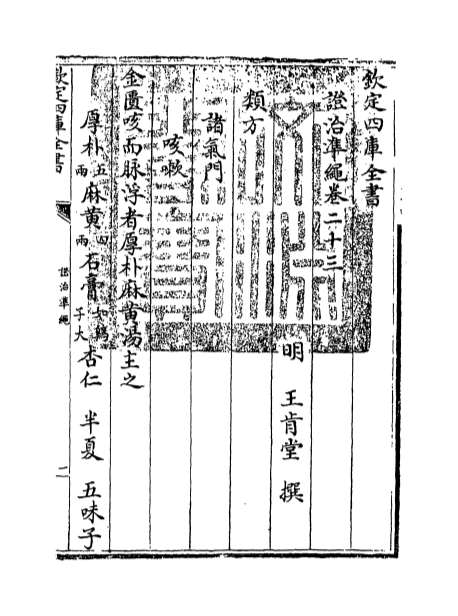 欽定四庫全書
證治準繩卷二十三
明 王肯堂 撰
類方
諸氣門
咳嗽
金匱咳而脉浮者厚朴麻黄湯主之
厚朴五兩麻黄四兩石膏如鷄子大杏仁 半夏 五味子
欽定四庫全書
證治準繩